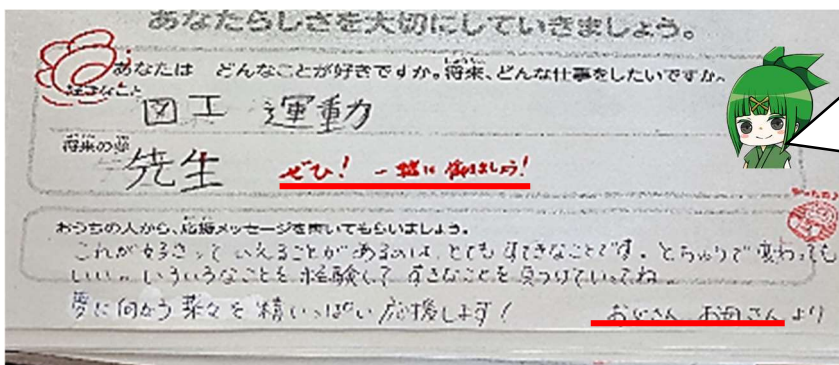 あなたらしさを大切にしていきましょう。
あなたは どんなことが好きですか。将来、どんな仕事をしたいですか。
好きなこと
図工 運動
将来の夢
先生 ぜひ!一緒に働きましょう!
おうちの人から、応援メッセージを書いてもらいましょう。
これが好きっていえることがあるのは、とてもすてきなことです。とちゅうで変わっても
いい。いろいろなことを経験して すきなことを見つけていってね。
夢に向かう菜々を精いっぱい応援します! お父さん お母さんより